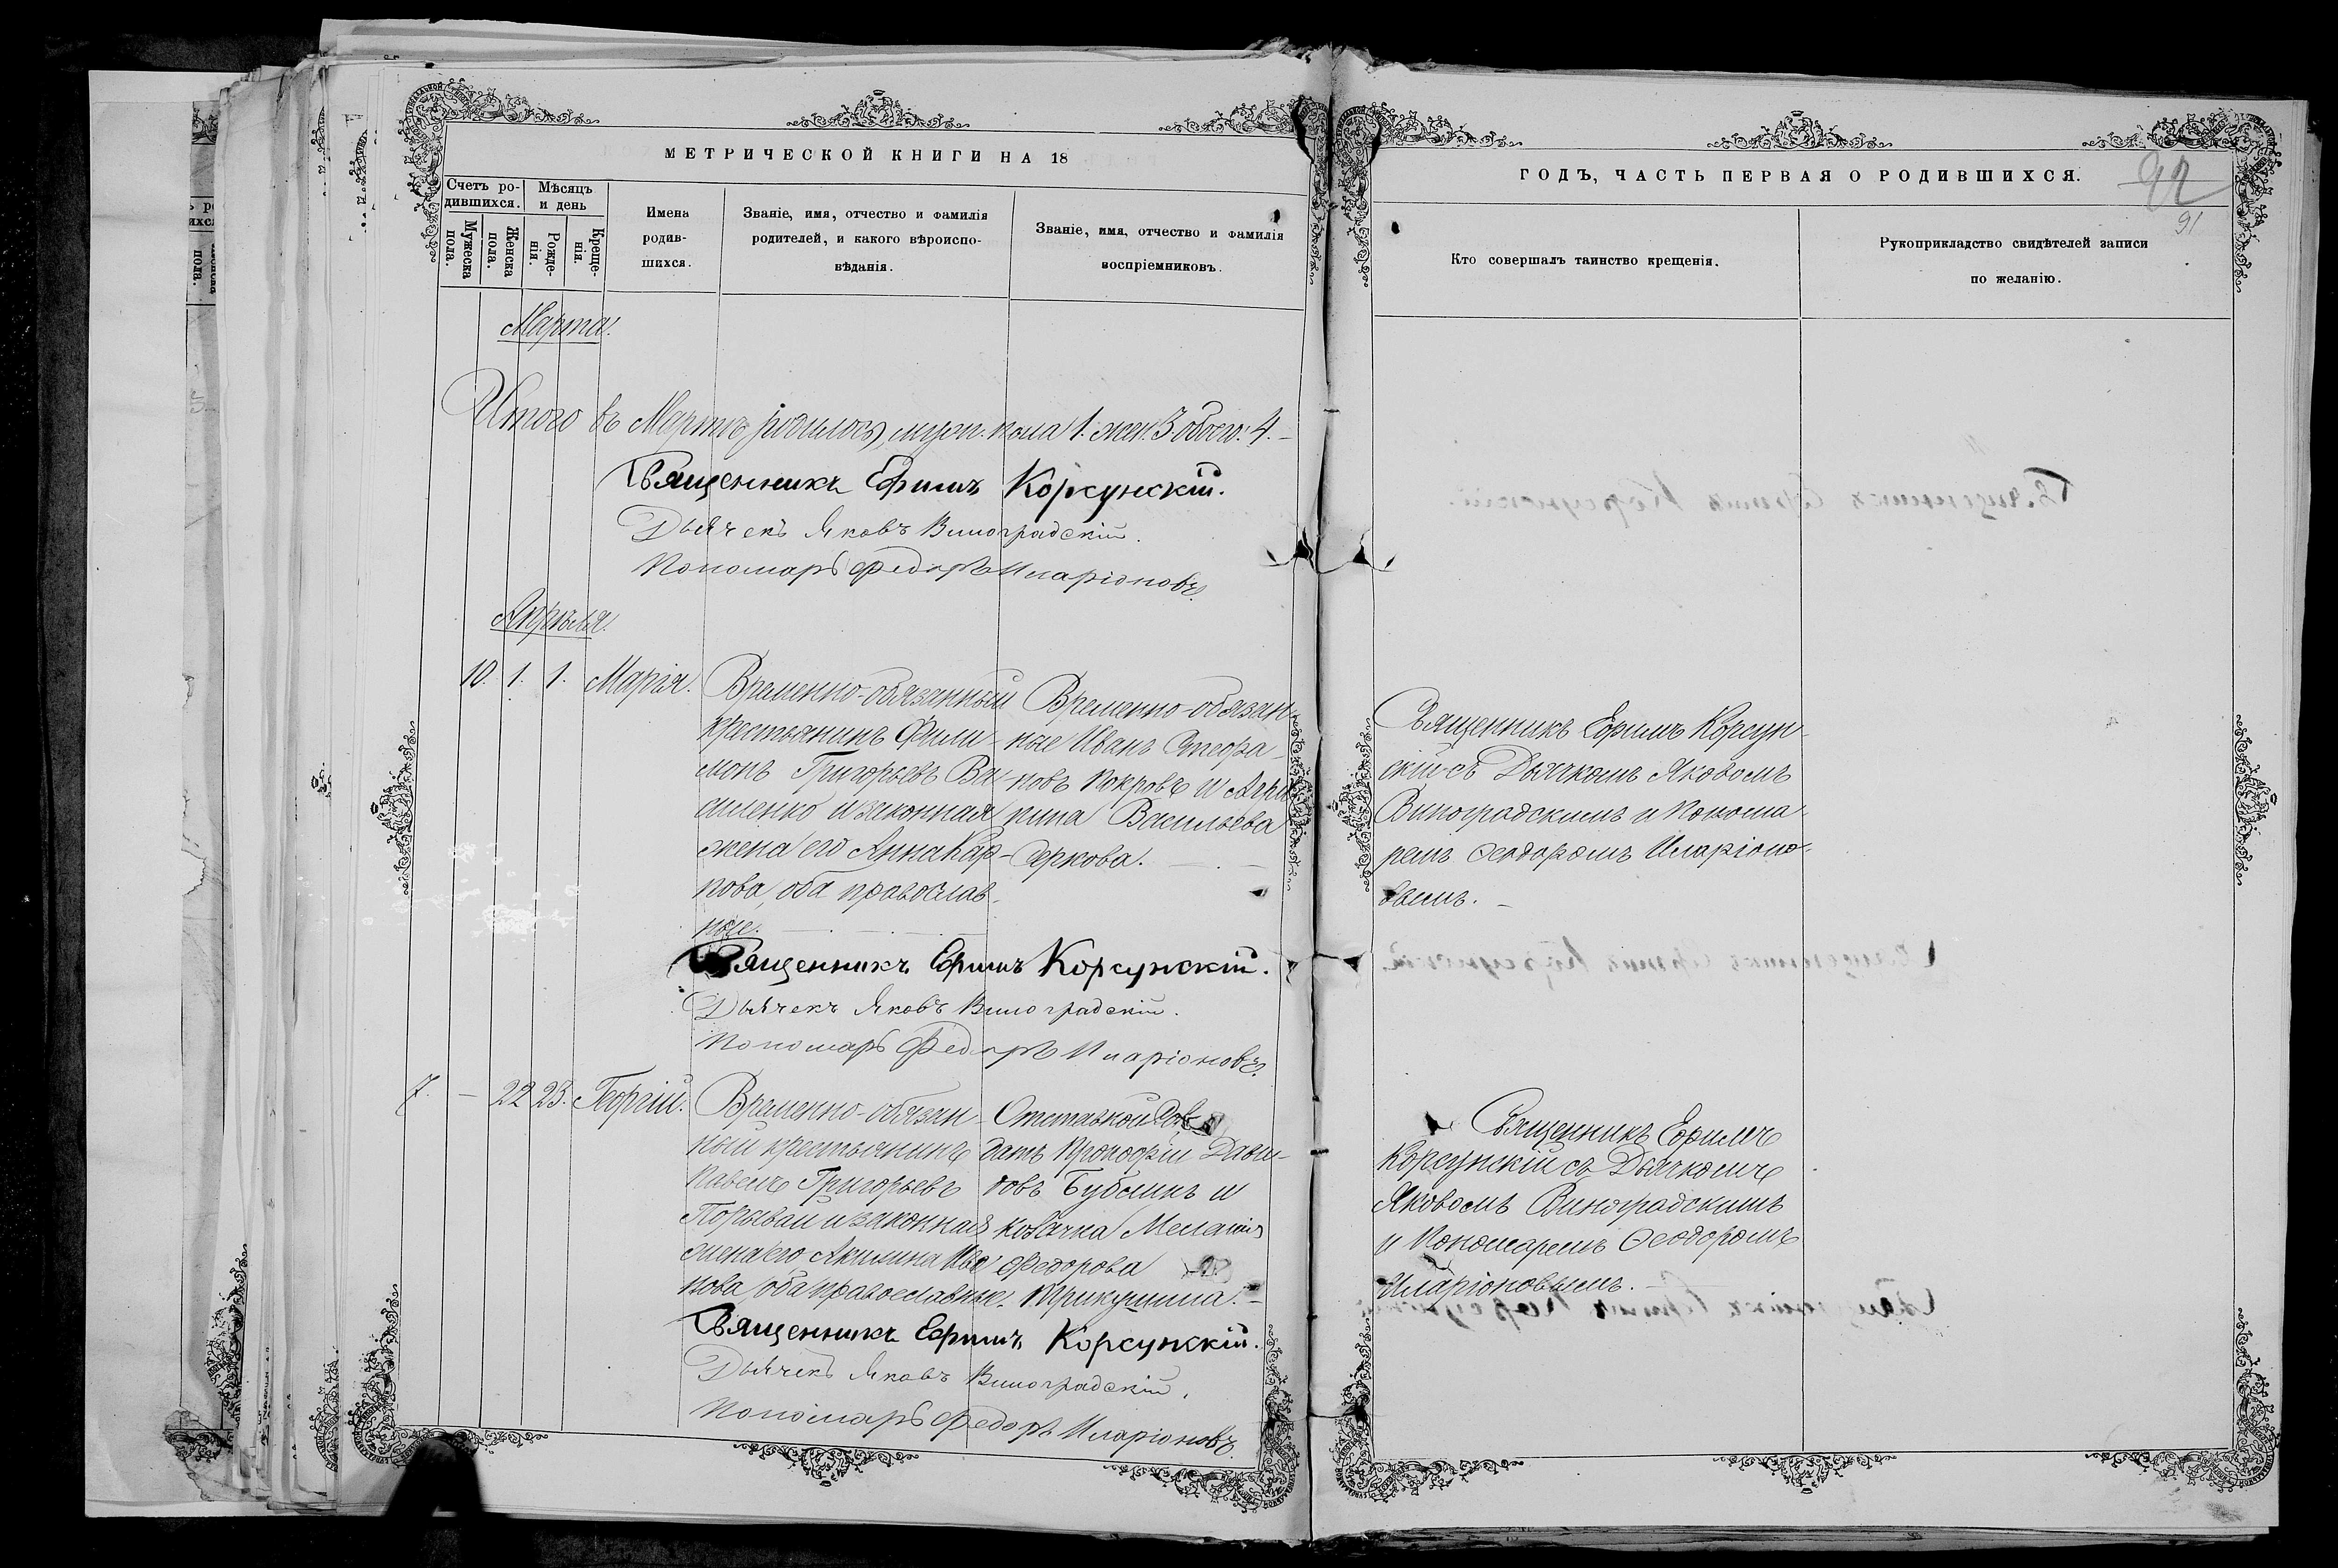 МЕТРИЧЕСКОЙ КНИГИ НА 18
Счетъ ро-
дившихся.
Мѣсяцъ
и день
Мужеска
пола.
Женска
пола.
Рожде-
нія.
Креще-
нія.
Имена
родив-
шихся.
Званіе, имя, отчество и фамилія
родителей, и какого вѣроиспо-
вѣданія.
Званіе, имя, отчество и фамилія
воспріемниковъ.
Марта.
Итого въ Мартѣ родилось муж. пола 1. жен. 3. обоего: 4.
Священникъ Ефимъ Корсунскій.
Дьячекъ Яковъ Виноградскій.
Пономарь Федоръ Иларіоновъ.
Апрѣля.
10. 1. 1. Марія.
Временно-обязанный
крестьянинъ Фили-
монъ Григорьевъ
и законная
жена его Анна Кар-
пова, оба православ-
ные.
Временно-обязан-
ные Иванъ
и Агри-
пина Васильева
Священникъ Ефимъ Корсунскій.
Дьячекъ Яковъ Виноградскій.
Пономарь Федоръ Иларіоновъ.
7. – 22 23. Георгій.
Временно-обязан-
ный крестьянинъ
Павелъ Григорьевъ
и законная
жена его Акилина Ива
нова, оба православные.
Отставной
датъ Прокофій Дави-
довъ Бубликъ и
козачка Меланія
Федорова
Священникъ Ефимъ Корсунскій.
Дьячекъ Яковъ Виноградскій.
Пономарь Федоръ Иларіоновъ.
ГОДЪ, ЧАСТЬ ПЕРВАЯ О РОДИВШИХСЯ.
92
91
Кто совершалъ таинство крещенія.
Рукоприкладство свидѣтелей записи
по желанію.
Священникъ Ефимъ Корсун-
скій съ Дьячкомъ Яковомъ
Виноградскимъ и Понома-
ремъ Ѳеодоромъ Иларіоно-
вымъ.
Священникъ Ефимъ
Корсунскій съ Дьячкомъ
Яковомъ Виноградскимъ
и Пономаремъ Ѳеодоромъ
Иларіоновымъ.